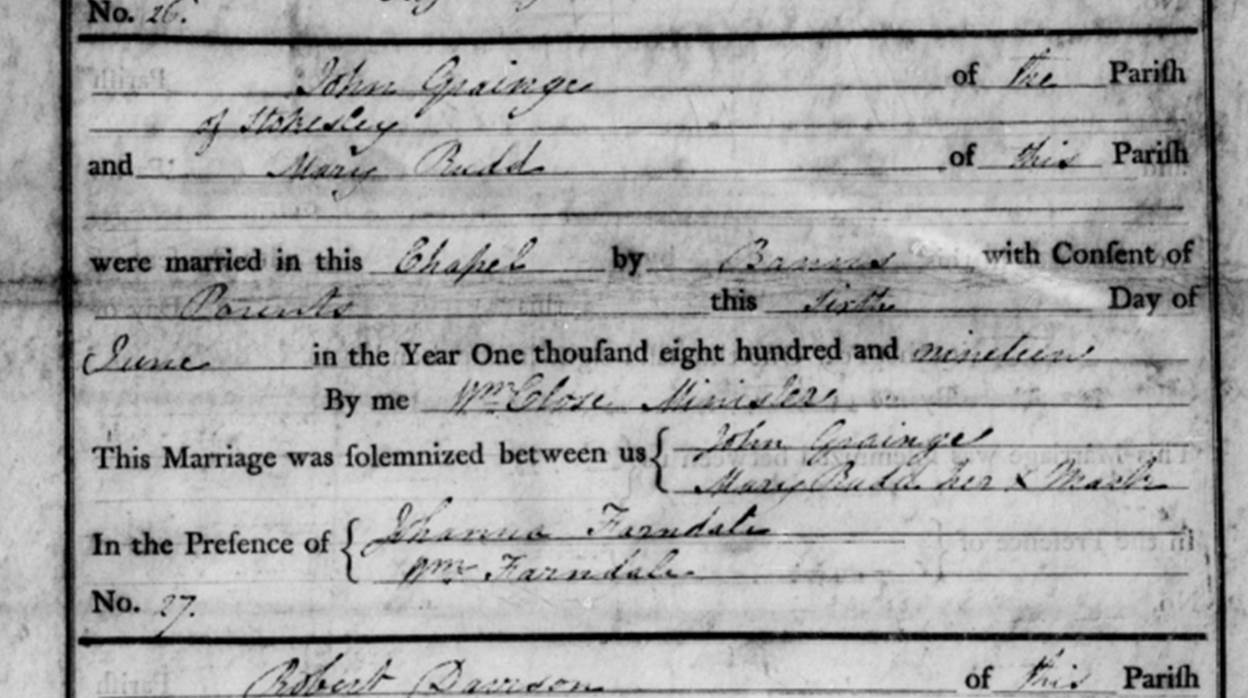 No. 26.
John Grainge of the Pariſh
of Stokesley
and Mary Rudd of this Pariſh
were married in this Chapel by Banns with Conſent of
Parents this sixth Day of
June in the Year One thouſand eight hundred and nineteen
By me Wm. Close Minister
This Marriage was ſolemnized between us { John Grainge
Mary Rudd her X Mark
In the Preſence of { Farndale
Wm. Farndale
No. 27.
Robert Davison of this Pariſh